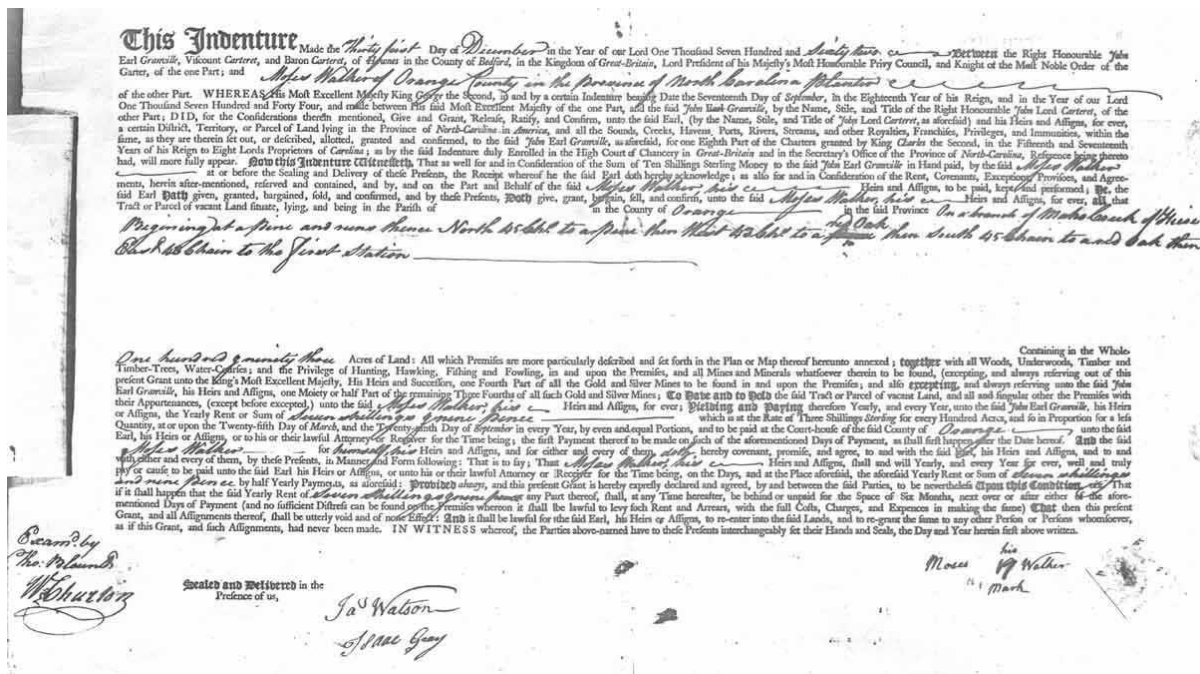 This Indenture Made the Thirty first Day of December in the Year of our Lord One Thousand Seven Hundred and Sixty two Between the Right Honourable John
Earl Granville, Viscount Carteret, and Baron Carteret, of Hawnes in the County of Bedford, in the Kingdom of Great-Britain, Lord President of his Majesty's Most Honourable Privy Council, and Knight of the Most Noble Order of the
Garter, of the one Part; and Moses Walker of Orange County in the Province of North Carolina Planter
of the other Part. WHEREAS His Most Excellent Majesty King George the Second, in and by a certain Indenture bearing Date the Seventeenth Day of September, in the Eighteenth Year of his Reign, and in the Year of our Lord
One Thousand Seven Hundred and Forty Four, and made between His said Most Excellent Majesty of the one Part, and the said John Earl Granville, by the Name, Stile, and Title of the Right Honourable John Lord Carteret, of the
other Part; DID, for the Considerations therein mentioned, Give and Grant, Release, Ratify, and Confirm, unto the said Earl, (by the Name, Stile, and Title of John Lord Carteret, as aforesaid) and his Heirs and Assigns, for ever,
a certain District, Territory, or Parcel of Land lying in the Province of North-Carolina in America, and all the Sounds, Creeks, Havens, Ports, Rivers, Streams, and other Royalties, Franchises, Privileges, and Immunities, within the
same, as they are therein set out, or described, allotted, granted and confirmed, to the said John Earl Granville, as aforesaid, for one Eighth Part of the Charters granted by King Charles the Second, in the Fifteenth and Seventeenth
Years of his Reign to Eight Lords Proprietors of Carolina; as by the said Indenture duly Enrolled in the High Court of Chancery in Great-Britain and in the Secretary's Office of the Province of North-Carolina, Reference being thereto
had, will more fully appear. Now this Indenture Witnesseth, That as well for and in Consideration of the Sum of Ten Shillings Sterling Money to the said John Earl Granville in Hand paid, by the said Moses Walker
at or before the Sealing and Delivery of these Presents, the Receipt whereof he the said Earl doth hereby acknowledge; as also for and in Consideration of the Rent, Covenants, Exceptions, Provisoes, and Agree-
ments, herein after-mentioned, reserved and contained, and by, and on the Part and Behalf of the said Moses Walker, his Heirs and Assigns, to be paid, kept and performed; He, the
said Earl Hath given, granted, bargained, sold, and confirmed, and by these Presents, Doth give, grant, bargain, sell, and confirm, unto the said Moses Walker, his Heirs and Assigns, for ever, all that
Tract or Parcel of vacant Land situate, lying, and being in the Parish of in the County of Orange in the said Province On a branch of
Begining at a pine and runs thence North 45 Chs. to a pine then West 43 Chs. to a red Oak then South 45 Chain to a red Oak then
East 43 Chain to the first Station
Containing in the Whole
One hundred & ninety three Acres of Land: All which Premises are more particularly described and set forth in the Plan or Map thereof hereunto annexed; together with all Woods, Underwoods, Timber and
Timber-Trees, Water-Courses; and the Privilege of Hunting, Hawking, Fishing and Fowling, in and upon the Premises, and all Mines and Minerals whatsoever therein to be found, (excepting, and always reserving out of this
present Grant unto the King's Most Excellent Majesty, His Heirs and Successors, one Fourth Part of all the Gold and Silver Mines to be found in and upon the Premises; and also excepting, and always reserving unto the said John
Earl Granville, his Heirs and Assigns, one Moiety or half Part of the remaining Three Fourths of all such Gold and Silver Mines; To Have and to Hold the said Tract or Parcel of vacant Land, and all and singular other the Premises with
their Appurtenances, (except before excepted,) unto the said Moses Walker, his Heirs and Assigns, for ever; Yielding and Paying therefore Yearly, and every Year, unto the said John Earl Granville, his Heirs
or Assigns, the Yearly Rent or Sum of Seven shillings & nine Pence which is at the Rate of Three Shillings Sterling for every Hundred Acres, and so in Proportion for a less
Quantity, at or upon the Twenty-fifth Day of March, and the Twenty-ninth Day of September in every Year, by even and equal Portions, and to be paid at the Court-house of the said County of Orange unto the said
Earl, his Heirs or Assigns, or to his or their lawful Attorney or Receiver for the Time being; the first Payment thereof to be made on such of the aforementioned Days of Payment, as shall first happen after the Date hereof. And the said
Moses Walker for himself his Heirs and Assigns, and for either and every of them, doth, hereby covenant, promise, and agree, to and with the said Earl, his Heirs and Assigns, and to and
with either and every of them, by these Presents, in Manner and Form following: That is to say; That Moses Walker, his Heirs and Assigns, shall and will Yearly, and every Year for ever, well and truly
pay or cause to be paid unto the said Earl his Heirs or Assigns, or unto his or their lawful Attorney or Receiver for the Time being, on the Days, and at the Place aforesaid, the aforesaid Yearly Rent or Sum of seven shillings
and nine Pence by half Yearly Payments, as aforesaid: Provided always, and this present Grant is hereby expresly declared and agreed, by and between the said Parties, to be nevertheless Upon this Condition, viz. That
if it shall happen that the said Yearly Rent of Seven shillings & nine pence or any Part thereof, shall, at any Time hereafter, be behind or unpaid for the Space of Six Months, next over or after either of the afore-
mentioned Days of Payment (and no sufficient Distress can be found on the Premises whereon it shall be lawful to levy such Rent and Arrears, with the full Costs, Charges, and Expences in making the same) That then this present
Grant, and all Assignments thereof, shall be utterly void and of none Effect: And it shall be lawful for the said Earl, his Heirs or Assigns, to re-enter into the said Lands, and to re-grant the same to any other Person or Persons whomsoever,
as if this Grant, and such Assignments, had never been made. IN WITNESS whereof, the Parties above-named have to these Presents interchangeably set their Hands and Seals, the Day and Year herein first above written.
Exam'd. by
Tho: Blount
W. Churton
Sealed and Delivered in the
Presence of us,
Jas Watson
Isaac Gray
his
Moses Walker
Mark